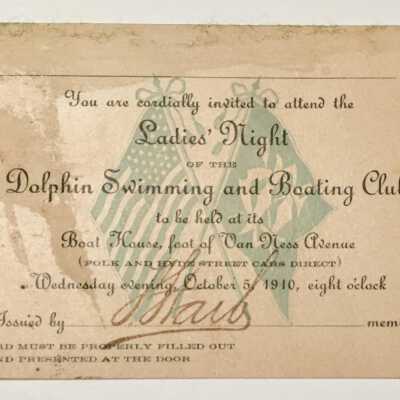 You are cordially invited to attend the
Ladies' Night
OF THE
Dolphin Swimming and Boating Club
to be held at its
Boat House, foot of Van Ness Avenue
(POLK AND HYDE STREET CARS DIRECT)
Wednesday evening, October 5, 1910, eight o'clock
Issued by mem
RD MUST BE PROPERLY FILLED OUT
ND PRESENTED AT THE DOOR